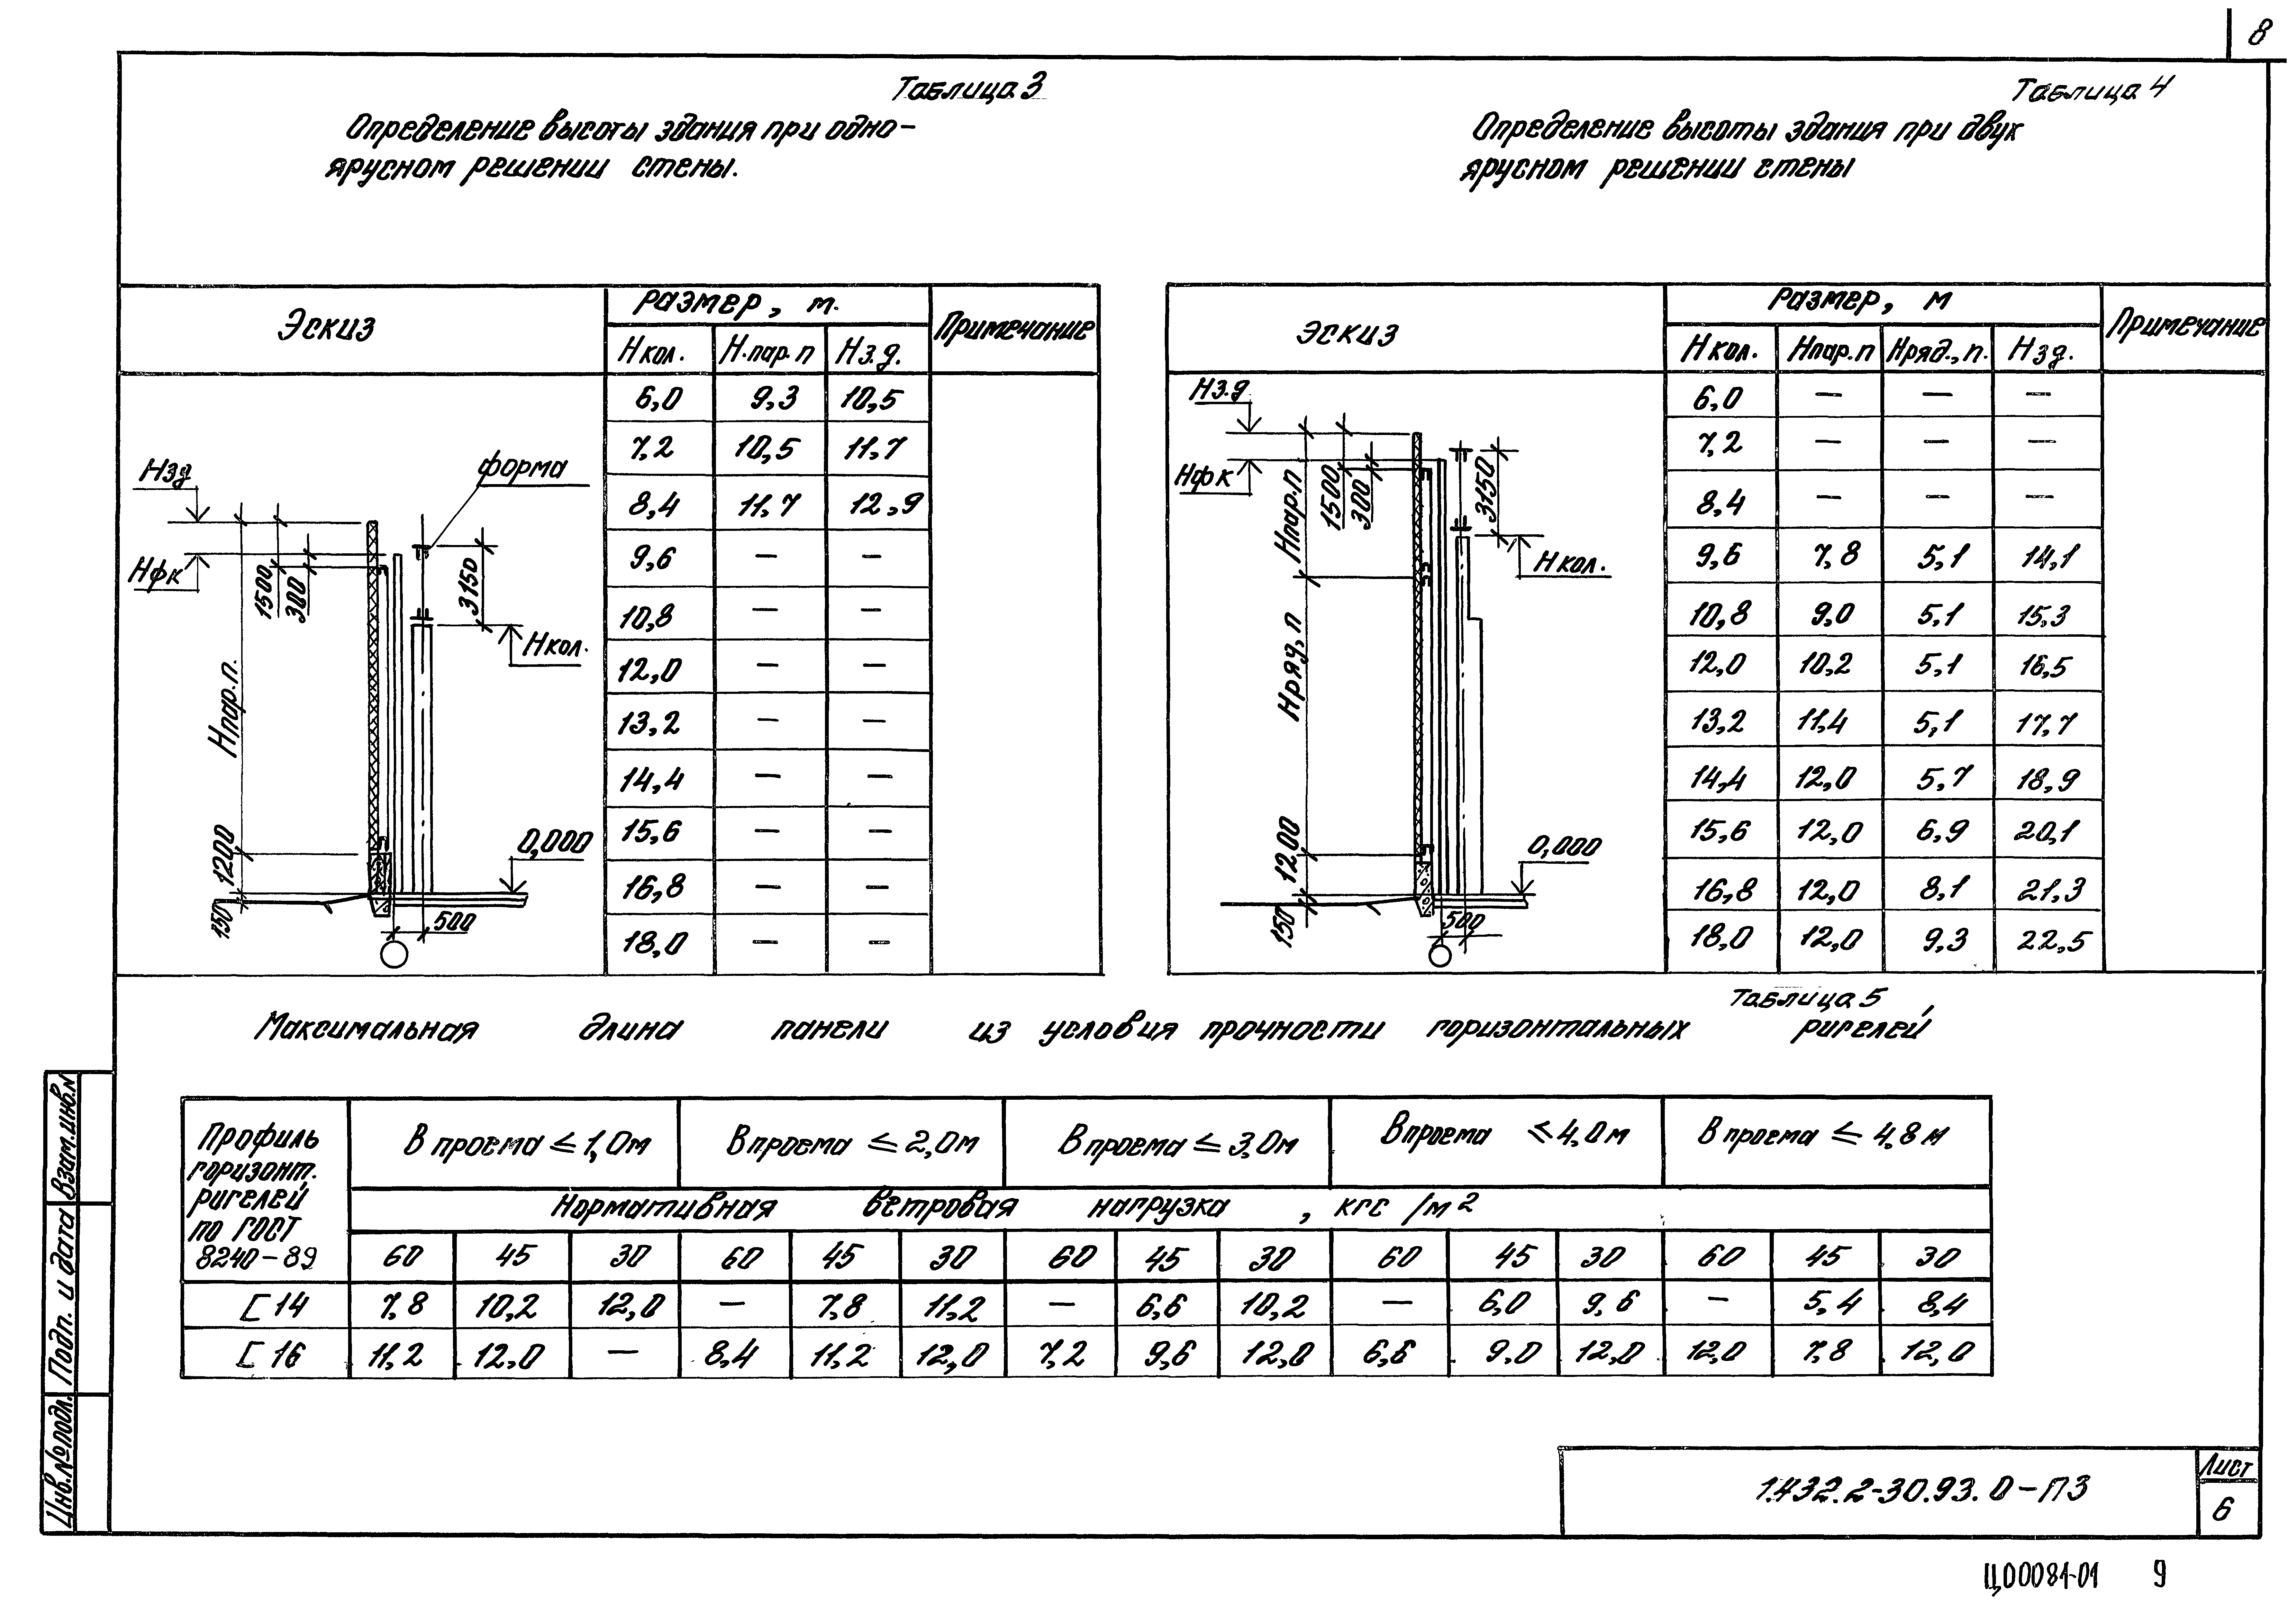 8
Таблица 3
Определение высоты здания при одно-
ярусном решении стены.
Эскиз
Размер, м.
Примечание
Н кол. Н.пар.п Нз.д.
6,0 9,3 10,5
7,2 10,5 11,7
8,4 11,7 12,9
9,6 — —
10,8 — —
12,0 — —
13,2 — —
14,4 — —
15,6 — —
16,8 — —
18,0 — —
Нзд
Нфк
форма
1500
300
3150
Нкол.
Нпар.п.
1200
150
0,000
500
Таблица 4
Определение высоты здания при двух
ярусном решении стены
Эскиз
Размер, м
Примечание
Н кол. Нпар.п Нряд., п. Нзд.
6,0 — — —
7,2 — — —
8,4 — — —
9,6 7,8 5,1 14,1
10,8 9,0 5,1 15,3
12,0 10,2 5,1 16,5
13,2 11,4 5,1 17,7
14,4 12,0 5,7 18,9
15,6 12,0 6,9 20,1
16,8 12,0 8,1 21,3
18,0 12,0 9,3 22,5
Нз.д
Нфк
Нпар.п
1500
300
3150
Нкол.
Нряд, п
1200
150
0,000
500
Таблица 5
Максимальная длина панели из условия прочности горизонтальных ригелей
Профиль
горизонт.
ригелей
по ГОСТ
8240-89
В проема ≤ 1,0м В проема ≤ 2,0м В проема ≤ 3,0м В проема ≤ 4,0м В проема ≤ 4,8м
Нормативная ветровая нагрузка, кгс/м2
60 45 30 60 45 30 60 45 30 60 45 30 60 45 30
[14 7,8 10,2 12,0 — 7,8 11,2 — 6,6 10,2 — 6,0 9,6 — 5,4 8,4
[16 11,2 12,0 — 8,4 11,2 12,0 7,2 9,6 12,0 6,6 9,0 12,0 12,0 7,8 12,0
Взам.инв.№
Подп. и дата
Инв.№ подл.
1.432.2-30.93.0-ПЗ
Лист
6
Ц00081-01 9